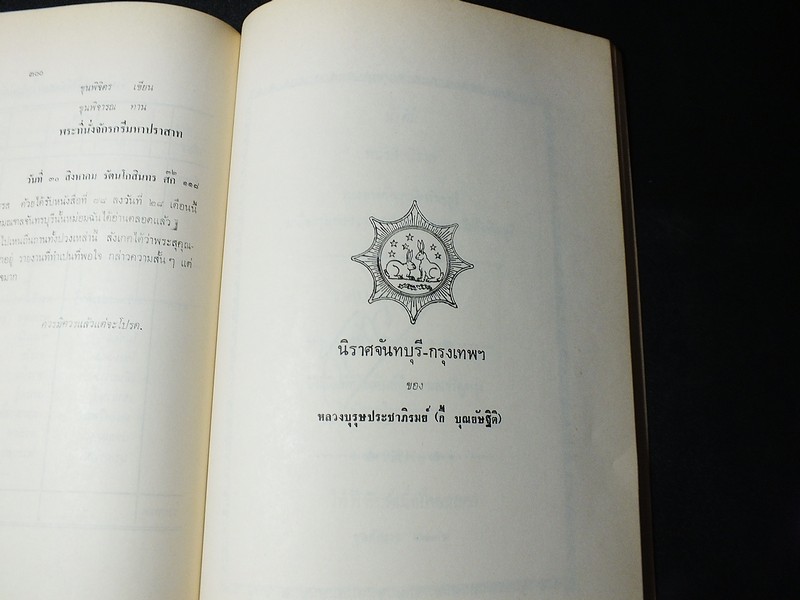 ๓๐๐
ขุนพิจิตร เขียน
ขุนพิจารณ ทาน
พระที่นั่งจักรกรีมหาปราสาท
วันที่ ๓๐ สิงหาคม รัตนโกสินทร ศก ๓๒ ๑๑๘
ด้วยได้รับหนังสือที่ ๘๘ ลงวันที่ ๒๘ เดือนนี้
มณฑลจันทบุรีนั้นหม่อมฉันได้อ่านตลอดแล้ว
ทั้งปวงเหล่านี้ สังเกตได้ว่าพระสุคุณ-
อยู่ รายงานที่ทำเปนที่พอใจ กล่าวความสั้น ๆ แต่
ควรมิควรแล้วแต่จะโปรด.
นิราศจันทบุรี-กรุงเทพฯ
ของ
หลวงบุรุษประชาภิรมย์ (กี้ บุณอัษฐิติ)